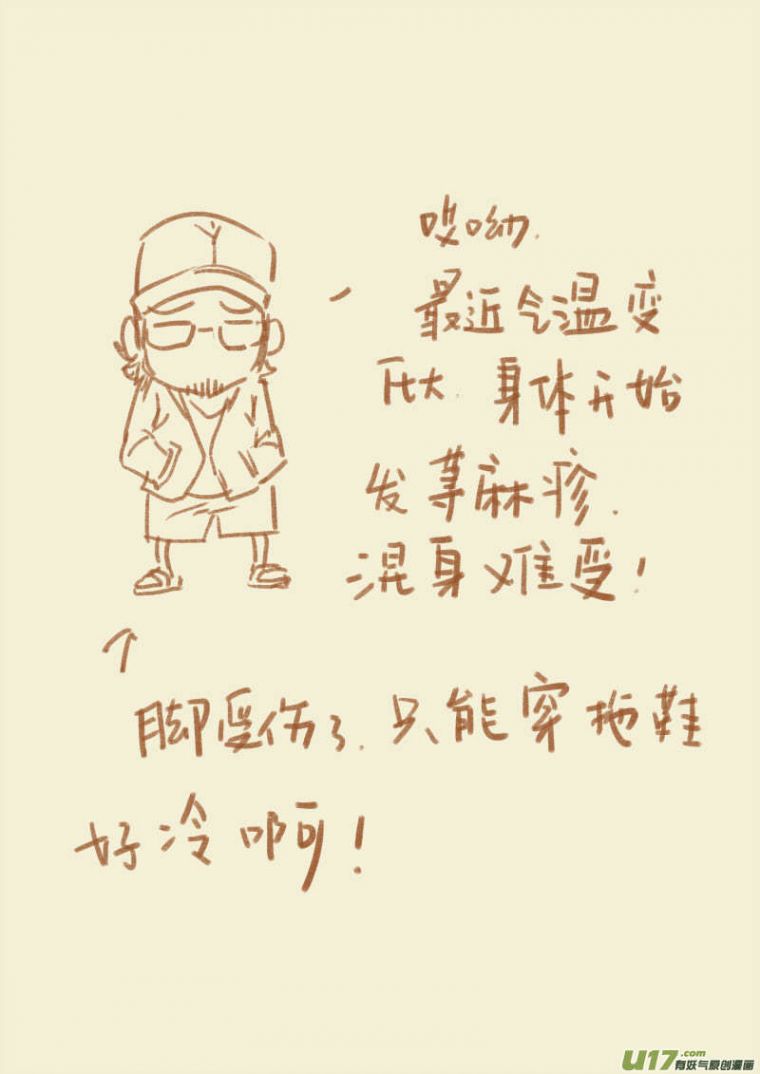 哎呦.
最近气温变
化大.身体开始
发荨麻疹.
混身难受!
脚受伤了.只能穿拖鞋
好冷啊!
U17.com
有妖气原创漫画